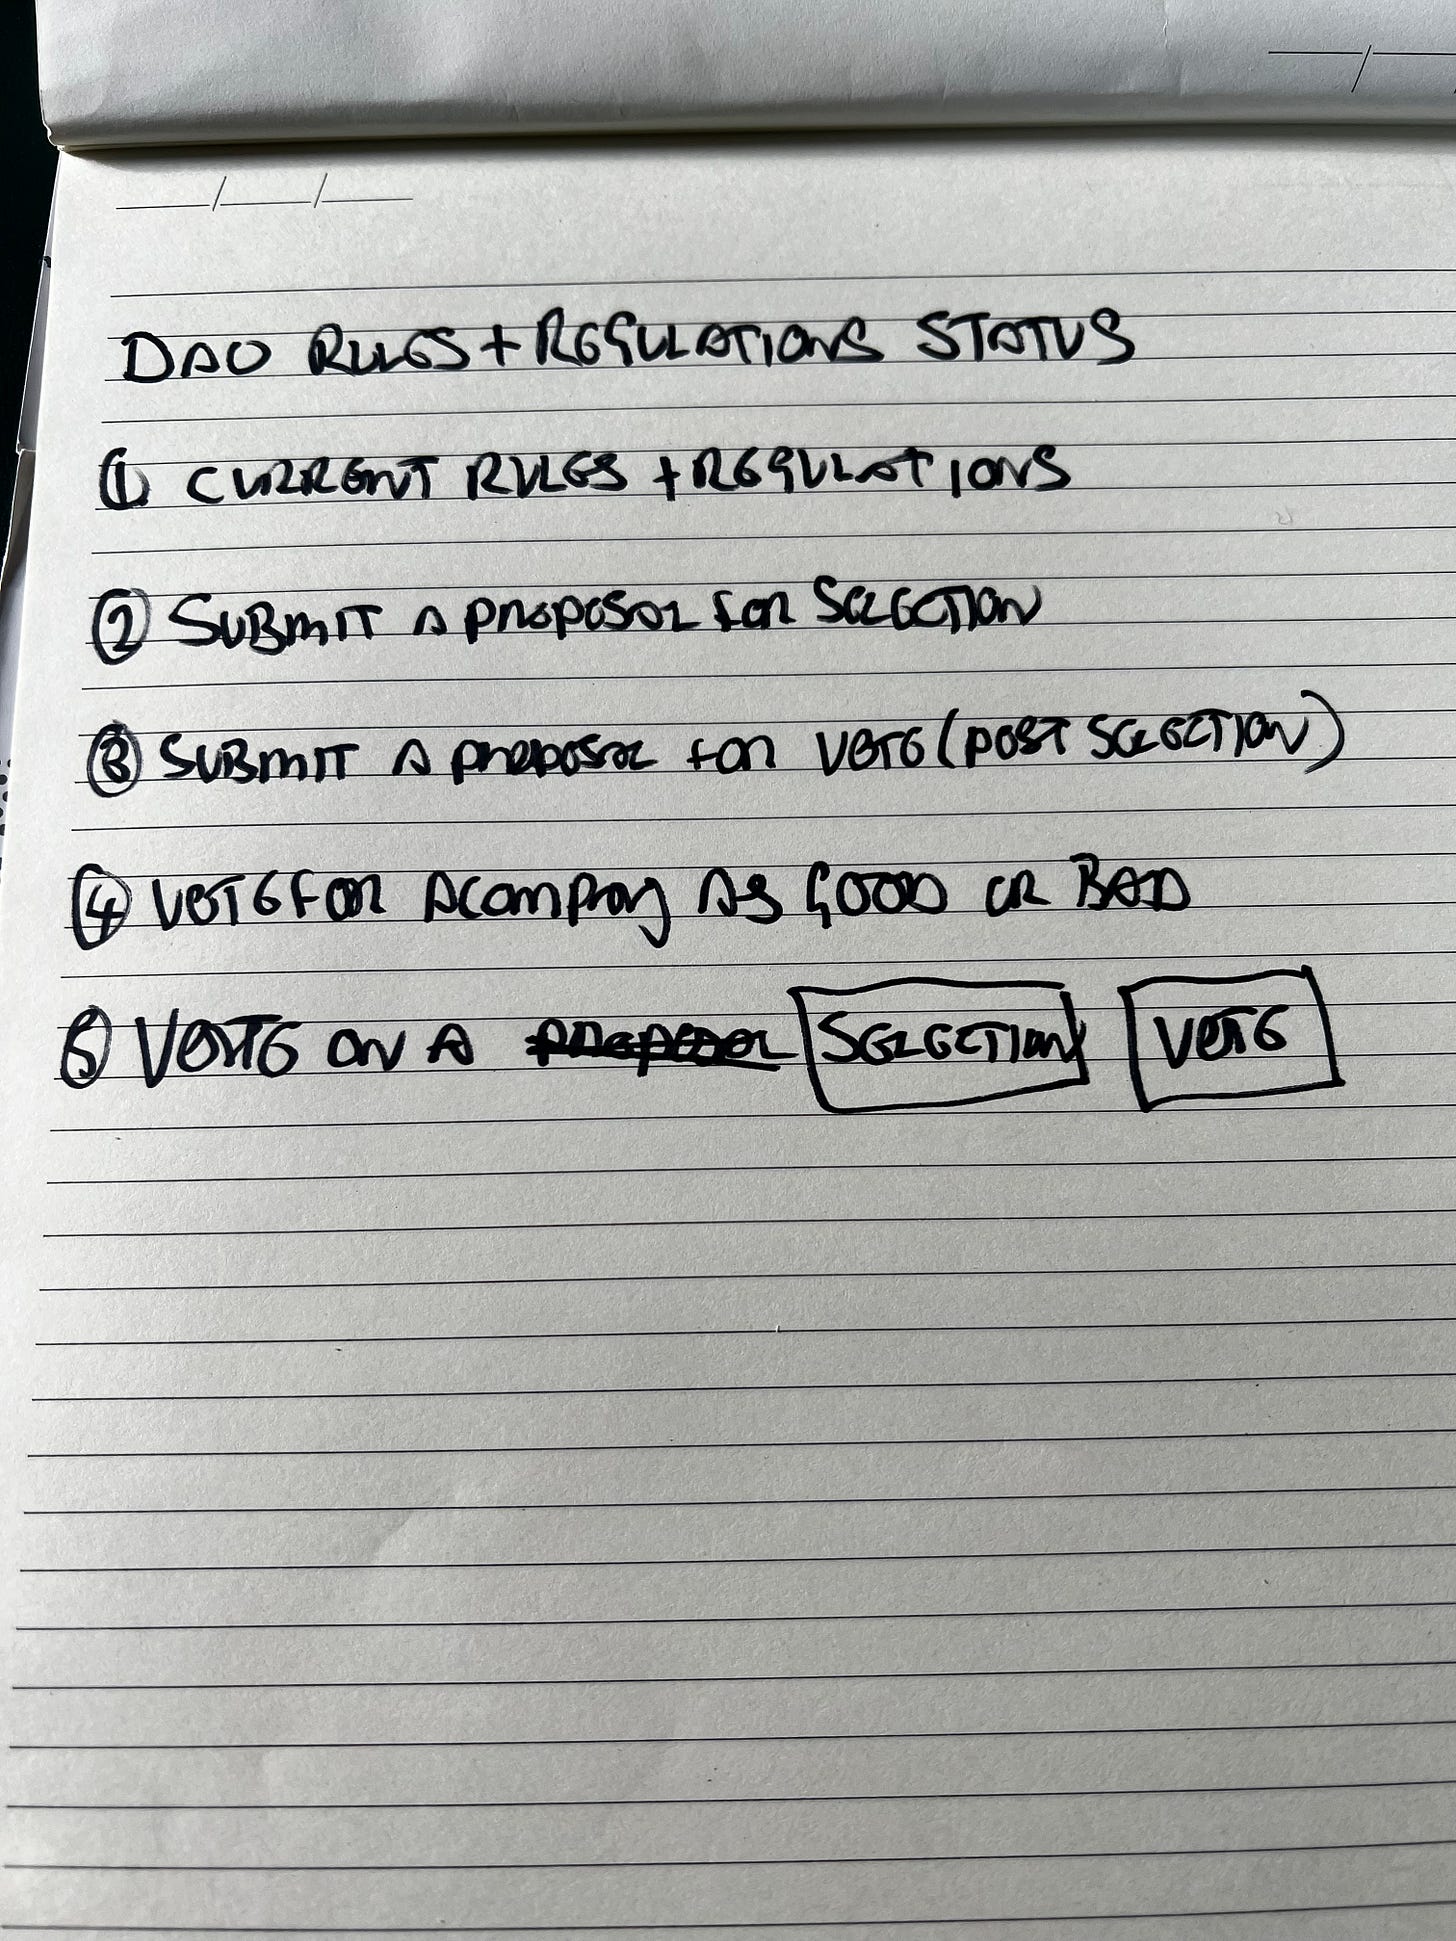 DAO RULES + REGULATIONS STATUS
① CURRENT RULES + REGULATIONS
② SUBMIT A PROPOSAL FOR SELECTION
③ SUBMIT A PROPOSAL FOR VOTE (POST SELECTION)
④ VOTE FOR A COMPANY AS GOOD OR BAD
⑤ VOTE ON A PROPOSAL SELECTION VOTE